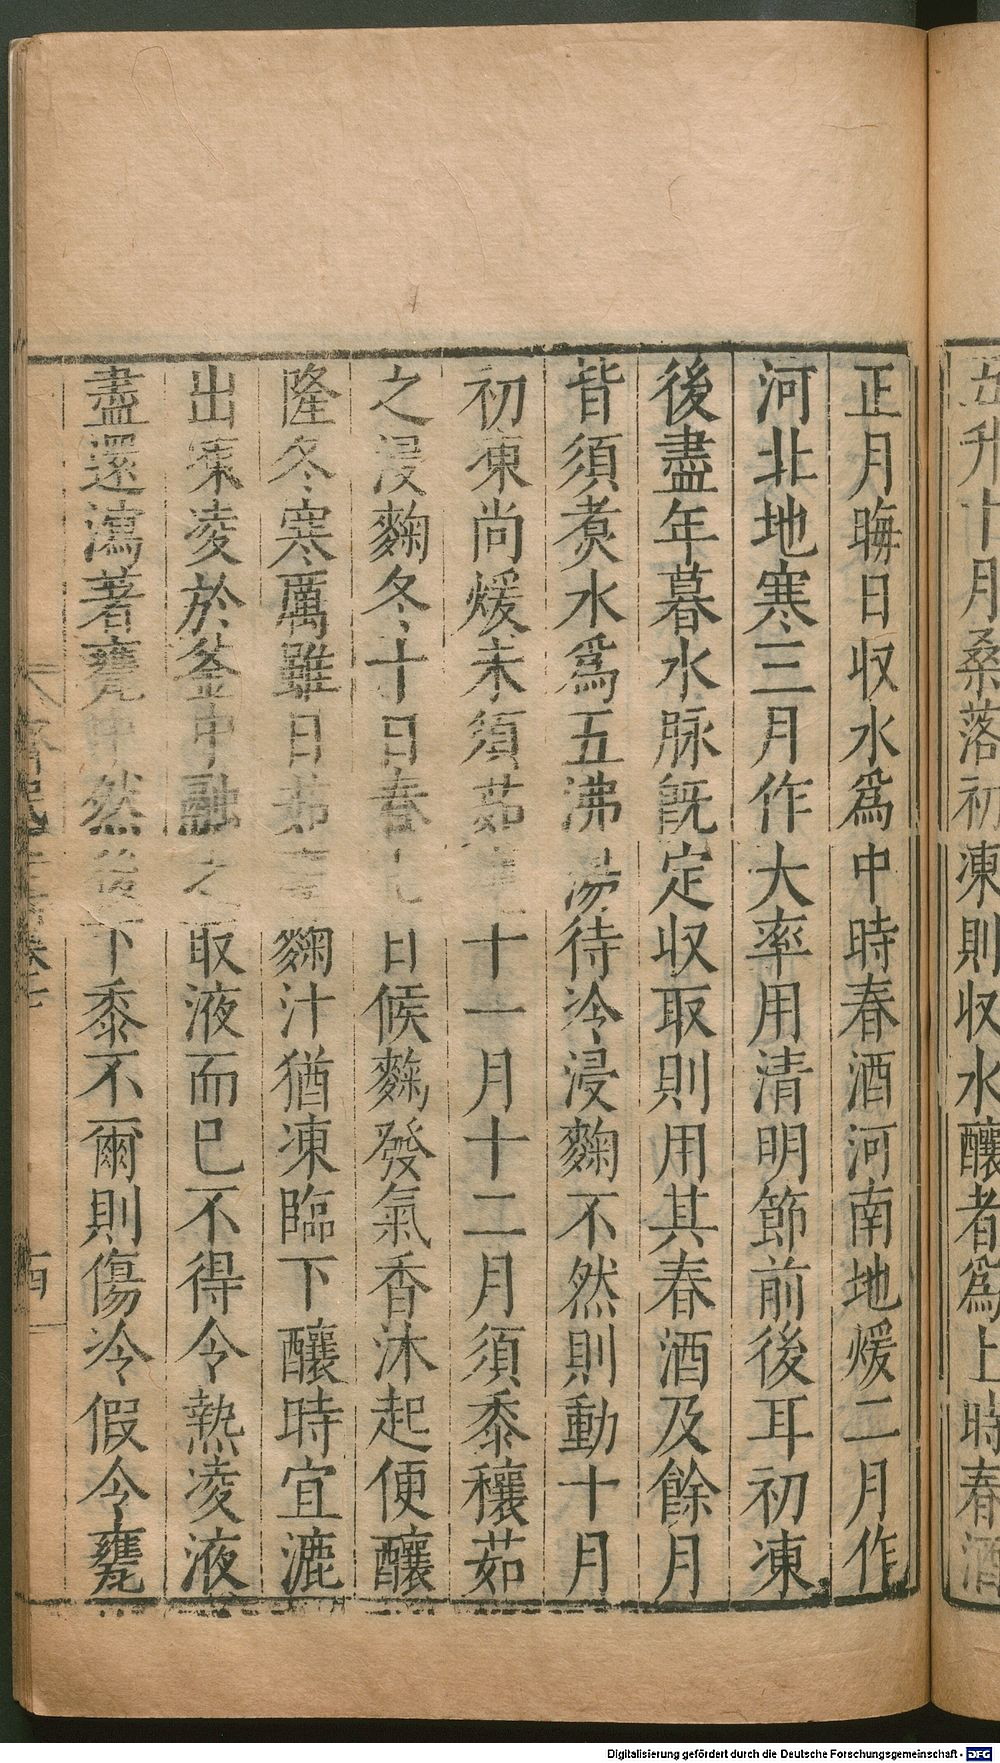 五升十月桑落初凍則収水釀者為上時春酒
正月晦日収水為中時春酒河南地煖二月作
河北地寒三月作大率用清明節前後耳初凍
後盡年暮水脉既定収取則用其春酒及餘月
皆須煑水為五沸湯待冷浸麴不然則動十月
初凍尚煖未須茹十一月十二月須黍穰茹
之浸麴冬十日春七日候麴發氣香沐起便釀
隆冬寒厲雖日茹麴汁猶凍臨下釀時宜漉
出凍凌於釜中融之取液而已不得令熱凌液
盡還瀉著甕中然後下黍不爾則傷冷假令甕
齊民 卷七
Digitalisierung gefördert durch die Deutsche Forschungsgemeinschaft - DFG